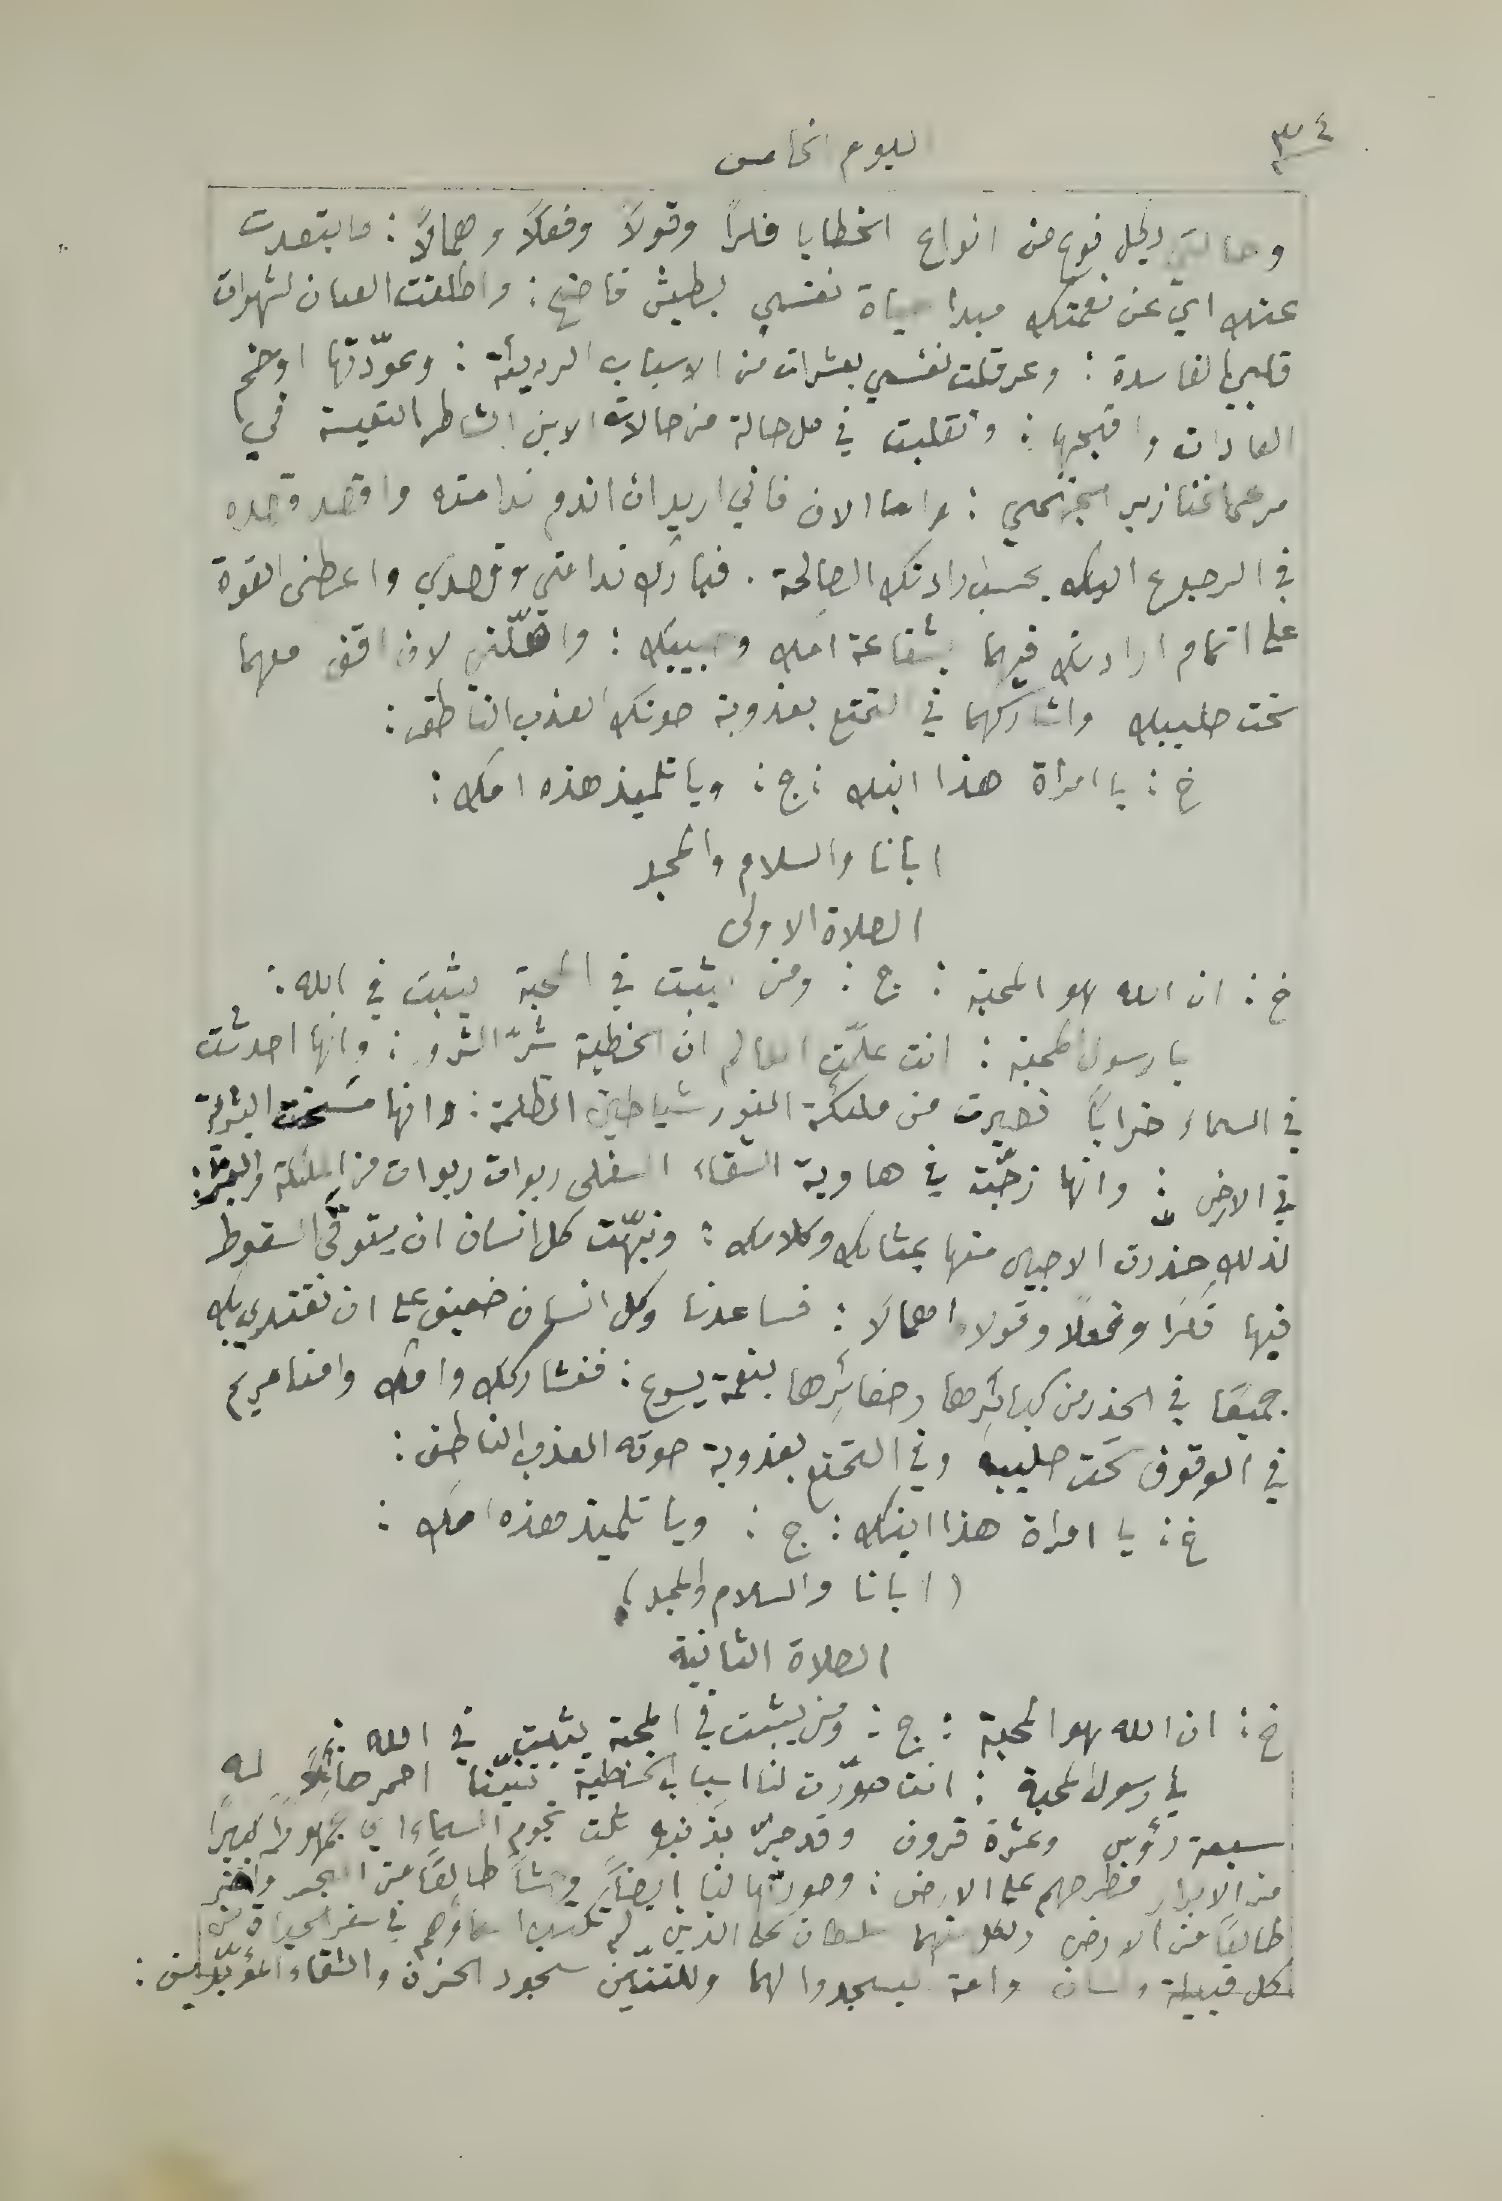 ٣٤
اليوم الخامس
وحالتي وبكل نوع من انواع الخطايا فكراً وقولاً وفعلاً واهمالاً : وابتعدت
عنك اي عن نعمتك مبدا حياة نفسي بطيش فاضح : واطلقت العنان لشهوات
قلبي الفاسدة : وعرقلت نفسي بعشرات من الاسباب الرديئة : وعوّدتها اوخم
العادات واقبحها : وتقلبت في كل حالة من حالات الابن الشاطر التعيسة في
مرعى خنازير : واما الان فاني اريد ان اندم ندامته واقصد قصده
في الرجوع اليك بحسب ارادتك الصالحة . فبارك ندامتي وقصدي واعطني القوة
على اتمام ارادتك فيهما بشفاعة امك وحبيبك : واهّلني لان اقف معهما
تحت صليبك واشاركهما في التمتع بعذوبة صوتك العذب الناطق :
خ : يا امراة هذا ابنك : ج : ويا تلميذ هذه امك :
ابانا والسلام والمجد
الصلاة الاولى
خ : ان الله هو المحبة : ج : ومن يثبت في المحبة يثبت في الله :
يا رسول المحبة : انت علّمت العالم ان الخطية شرّ الشرور : وانها احدثت
في السماء خراباً فصيرت من ملئكة النور شياطين الظلمة : وانها مسخت البشرية
في الارض : وانها زجّت في هاوية الشقاء السفلى ربوات ربوات من الملئكة والبشر :
لذلك حذرت الاجيال منها بمثالك وكلامك : ونبّهت كل انسان ان يتوقّى السقوط
فيها فكراً وفعلاً وقولاً واهمالاً : فساعدنا وكل انسان ضعيف على ان نقتدي بك
جميعًا في الحذر من كبائرها وصغائرها بنعمة يسوع : فنشاركك وامك وامنا مريم
في الوقوف تحت صليبه وفي التمتع بعذوبة صوته العذب الناطق :
خ : يا امراة هذا ابنك : ج : ويا تلميذ هذه امك :
( ابانا والسلام والمجد )
الصلاة الثانية
خ : ان الله هو المحبة : ج : ومن يثبت في المحبة يثبت في الله :
يا رسول المحبة : انت صوّرت لنا اسباب الخطية تنيّنًا احمر هائلاً له
سبعة رؤوس وعشرة قرون وقد جرّ بذنبه ثلث نجوم السماء اي جمهورًا كبيرًا
من الابرار فطرحهم على الارض : وصورتها لنا ايضاً وحشًا طالعًا من البحر واخر
طالعًا من الارض ولكل منهما سلطان على الذين لم تكتب اسماؤهم في سفر الحياة من
كل قبيلة ولسان وامة ليسجدوا لهما وللتنّين سجود الحزن والشقاء المؤبّدين :